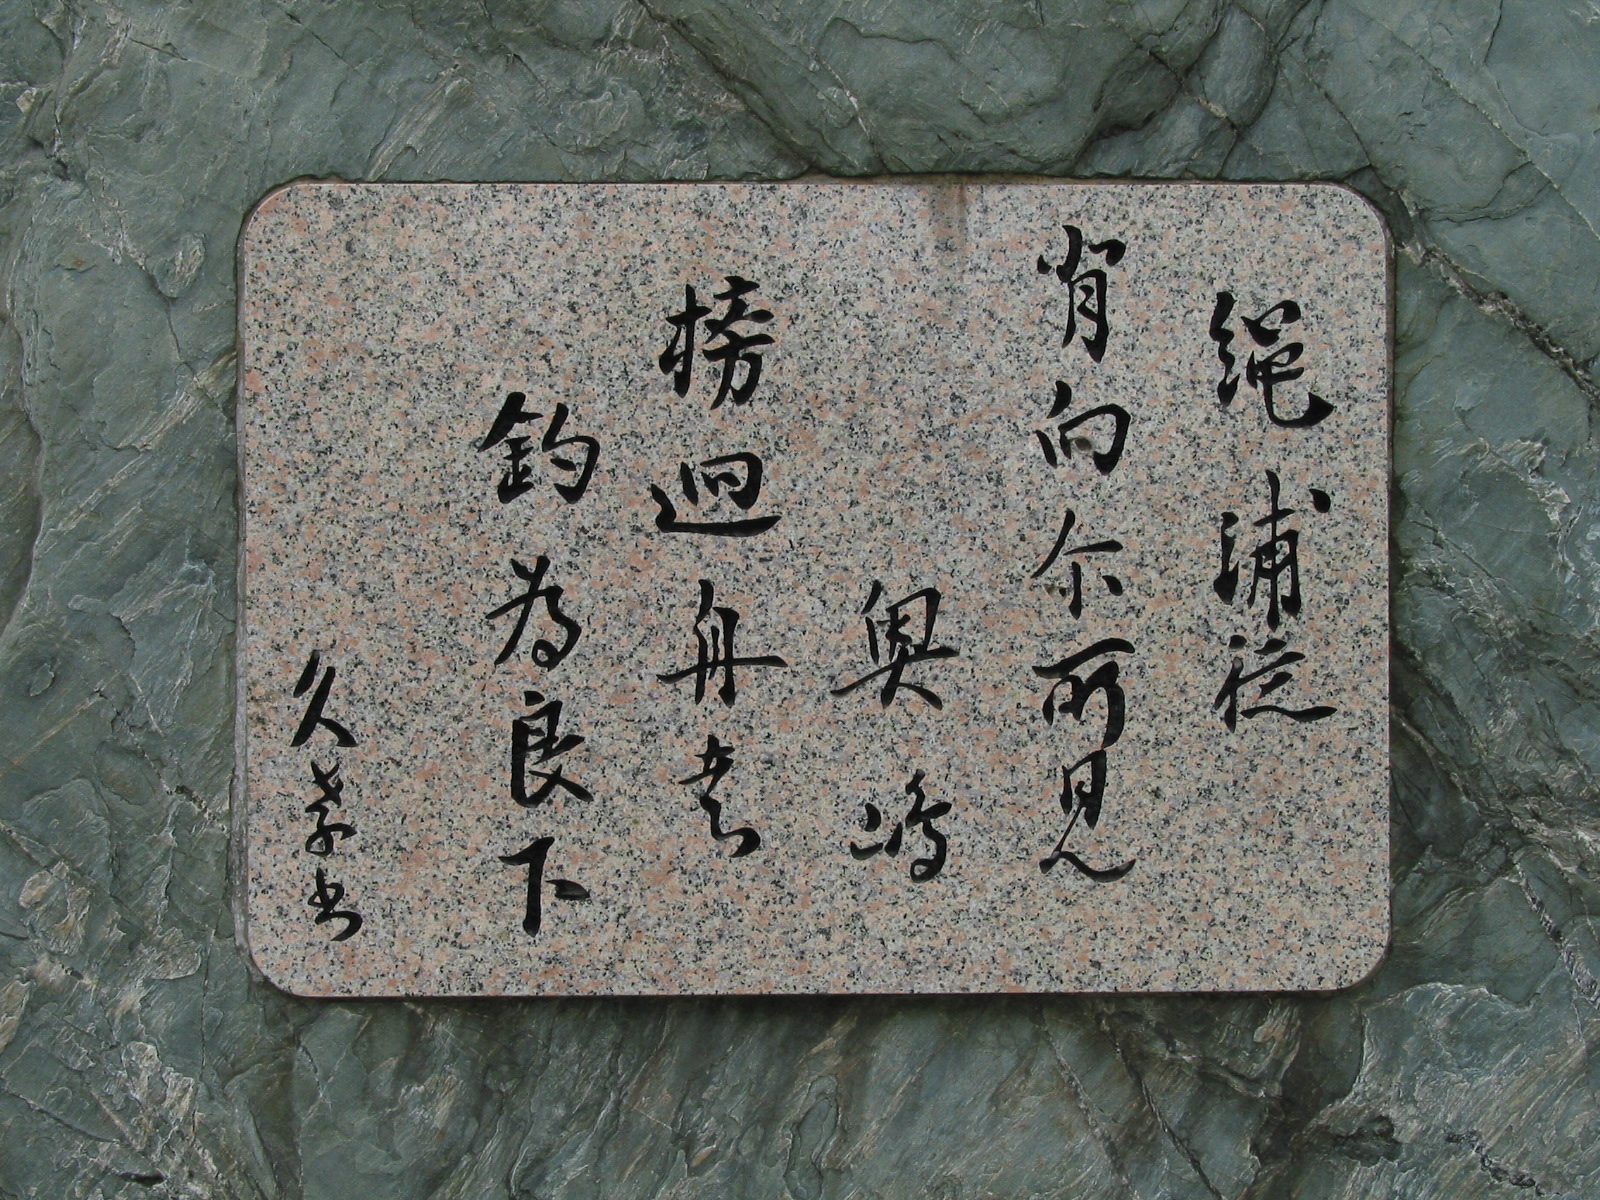 繩浦従
背向尓所見
奥嶋
榜廻舟者
釣為良下
久孝書